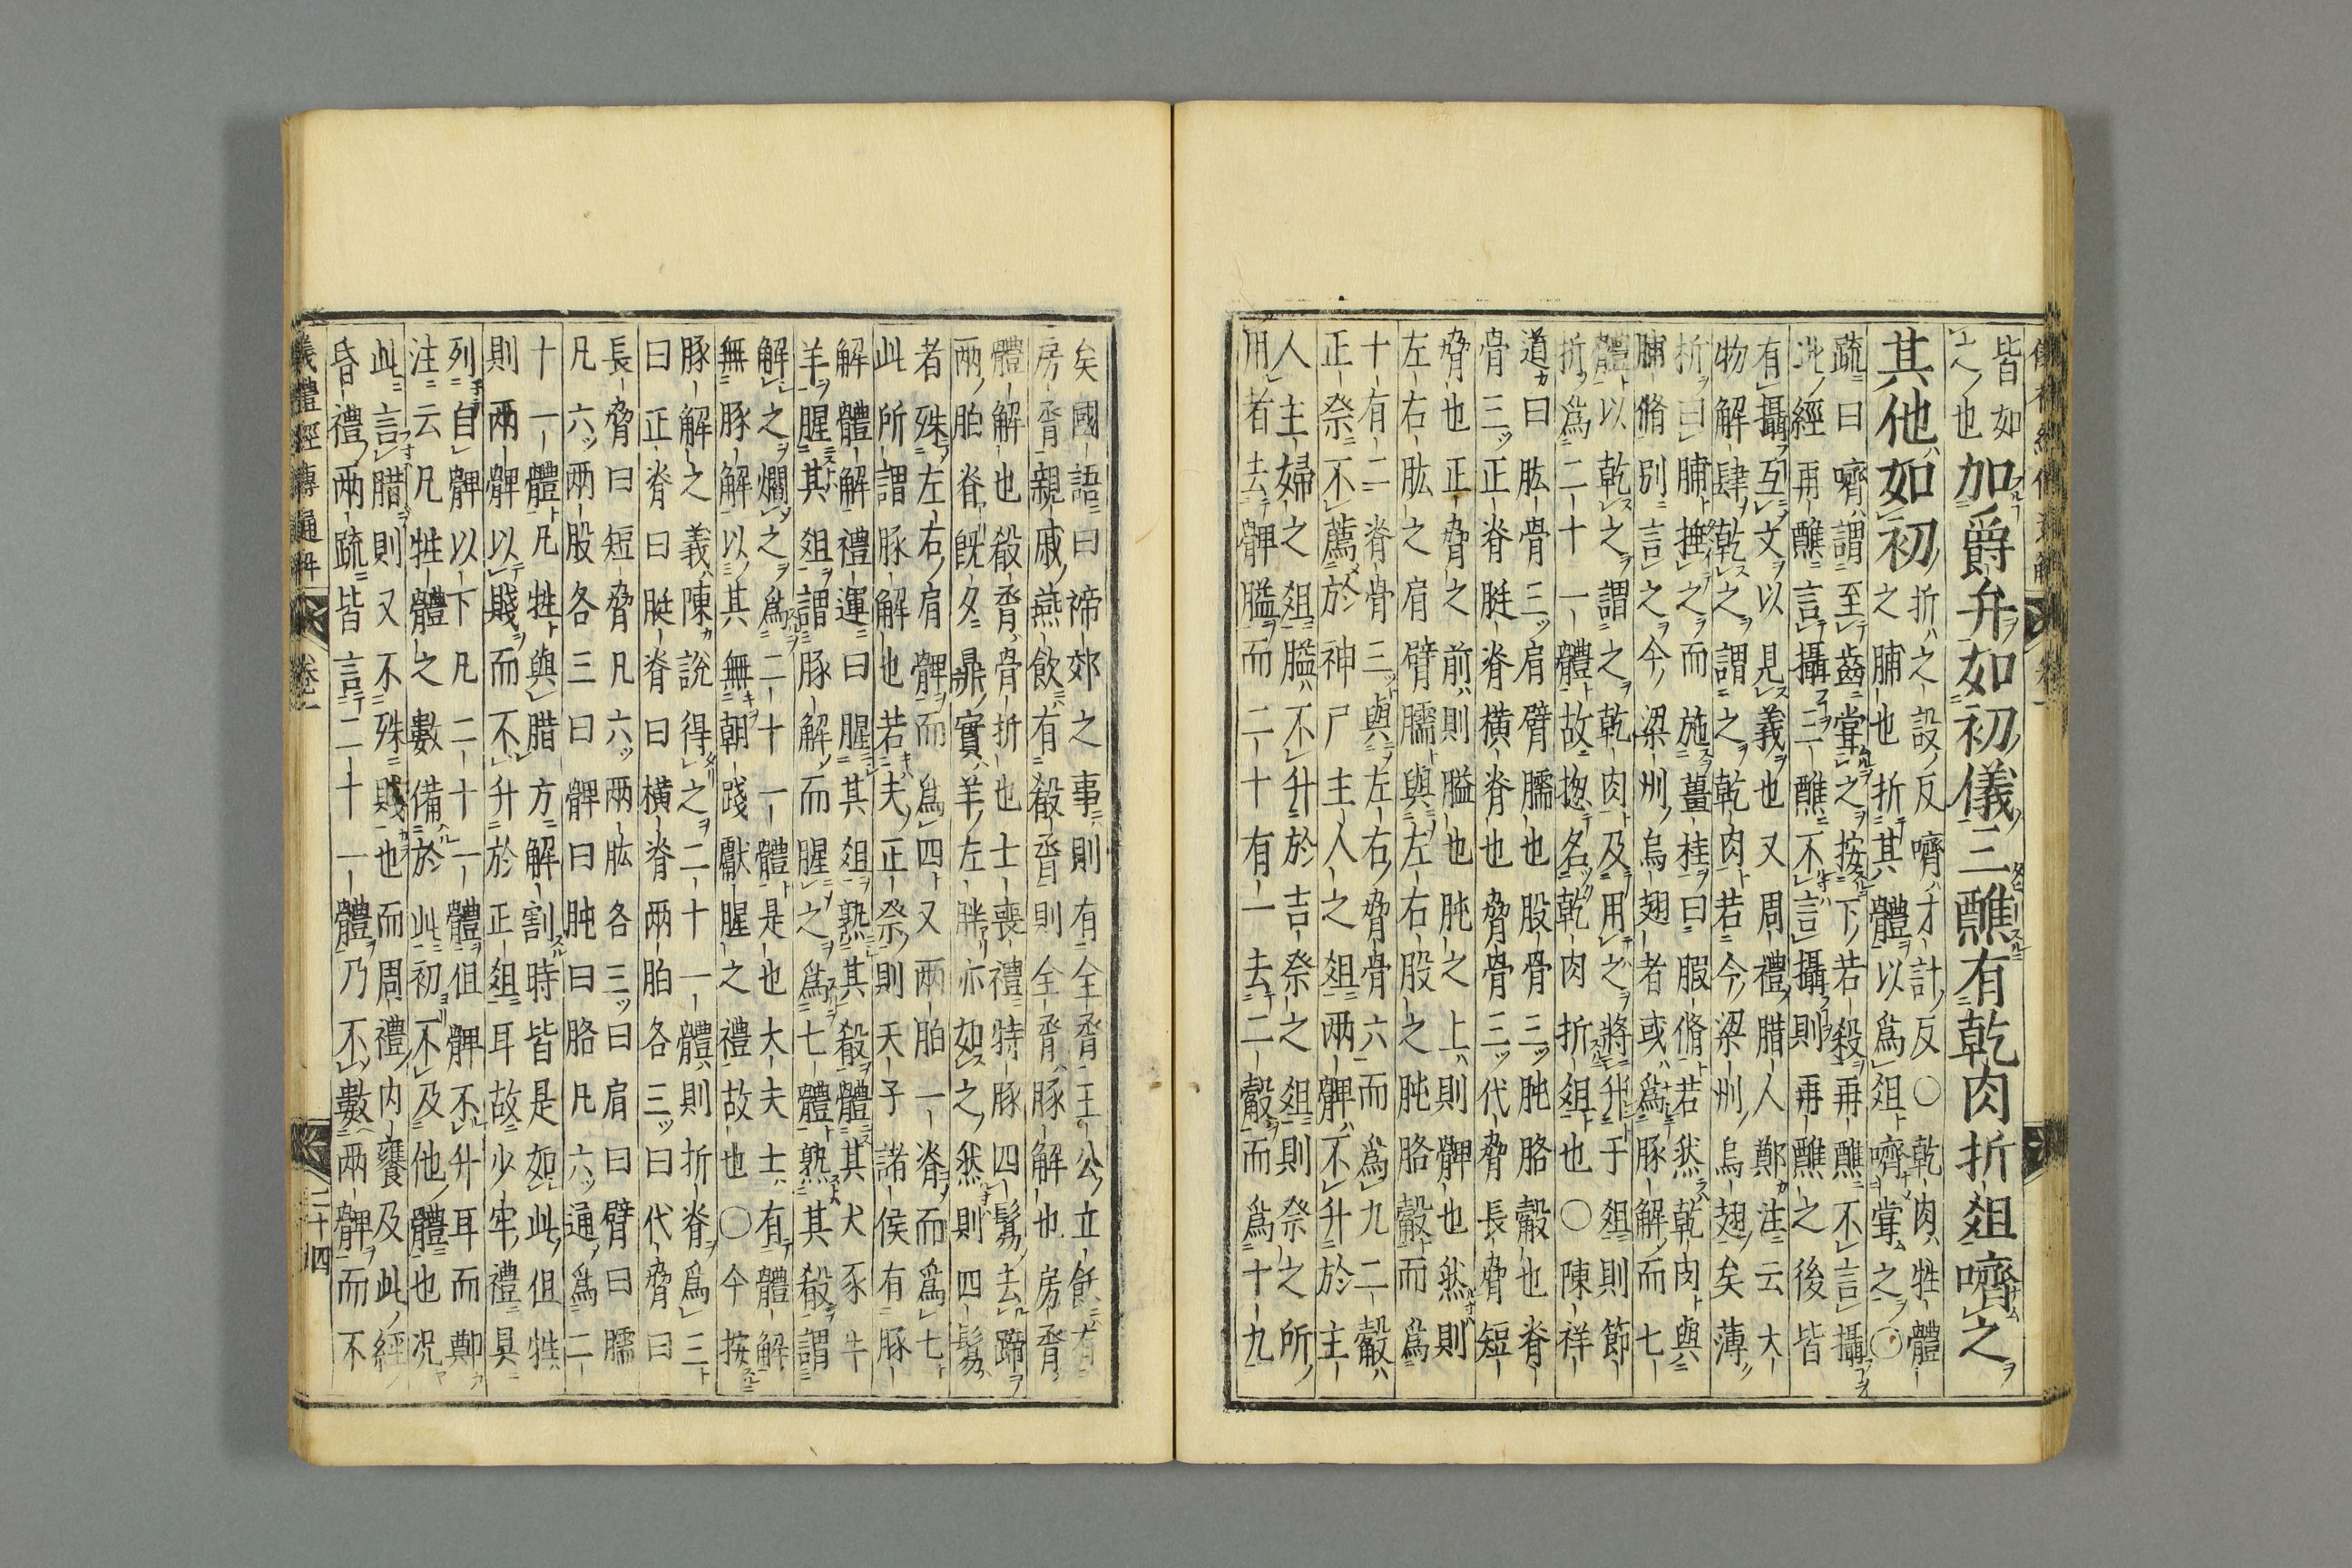 皆如
之人也加爵弁如初儀三醮有乾肉折俎嚌之
其他如初
折之設反嚌才計反〇乾肉牲體
之脯也折其體以爲俎嚌嘗之〇
疏曰嚌謂至齒嘗之按下若殺再醮不言攝
此經再醮言攝三醮不言攝則再醮之後皆
有攝互文以見義也又周禮腊人鄭注云大
物解肆乾之謂之乾肉若今梁州烏翅矣薄
折曰脯捶之而施薑桂曰腶脩若然乾肉與
脯脩別言之今梁州烏翅者或爲豚解而七
體以乾之謂之乾肉及用之將升于俎則節
折爲二十一體故揔名乾肉折俎也〇陳祥
道曰肱骨三肩臂臑也股骨三肫胳觳也脊
骨三正脊脡脊橫脊也脅骨三代脅長脅短
脅也正脅之前則膉也肫之上則髀也然則
左右肱之肩臂臑與左右股之肫胳觳而爲
十有二脊骨三與左右脅骨六而爲九二觳
正祭不薦於神尸主人之俎兩髀不升於主
人主婦之俎膉不升於吉祭之俎則祭之所
用者去髀膉而二十有一去二觳而爲十九
矣國語曰禘郊之事則有全脀王公立飫有
房脀親戚燕飲有殽脀則全脀豚解也房脀
體解也殽脀骨折也士喪禮特豚四鬄去蹄
兩胉脊旣夕鼎實羊左胖亦如之然則四鬄
者殊左右肩髀而爲四又兩胉一脊而爲七
此所謂豚解也若夫正祭則天子諸侯有豚
解體解禮運曰腥其俎熟其殽體其犬豕牛
羊腥其俎謂豚解而腥之爲七體熟其殽謂
解之爓之爲二十一體是也大夫士有體解
無豚解以其無朝踐獻腥之禮故也〇今按
豚解之義陳說得之二十一體則折脊爲三
曰正脊曰脡脊曰橫脊兩胉各三曰代脅曰
長脅曰短脅凡六兩肱各三曰肩曰臂曰臑
凡六兩股各三曰髀曰肫曰胳凡六通爲二
十一體凡牲與腊方解割時皆是如此但牲
則兩髀以賤而不升於正俎耳故少牢禮具
列自髀以下凡二十一體但髀不升耳而鄭
注云凡牲體之數備於此初不及他體也况
此言腊則又不殊賤也而周禮內饔及此經
昏禮兩疏皆言二十一體乃不數兩髀而不
儀禮經傳通解 卷一 二十四